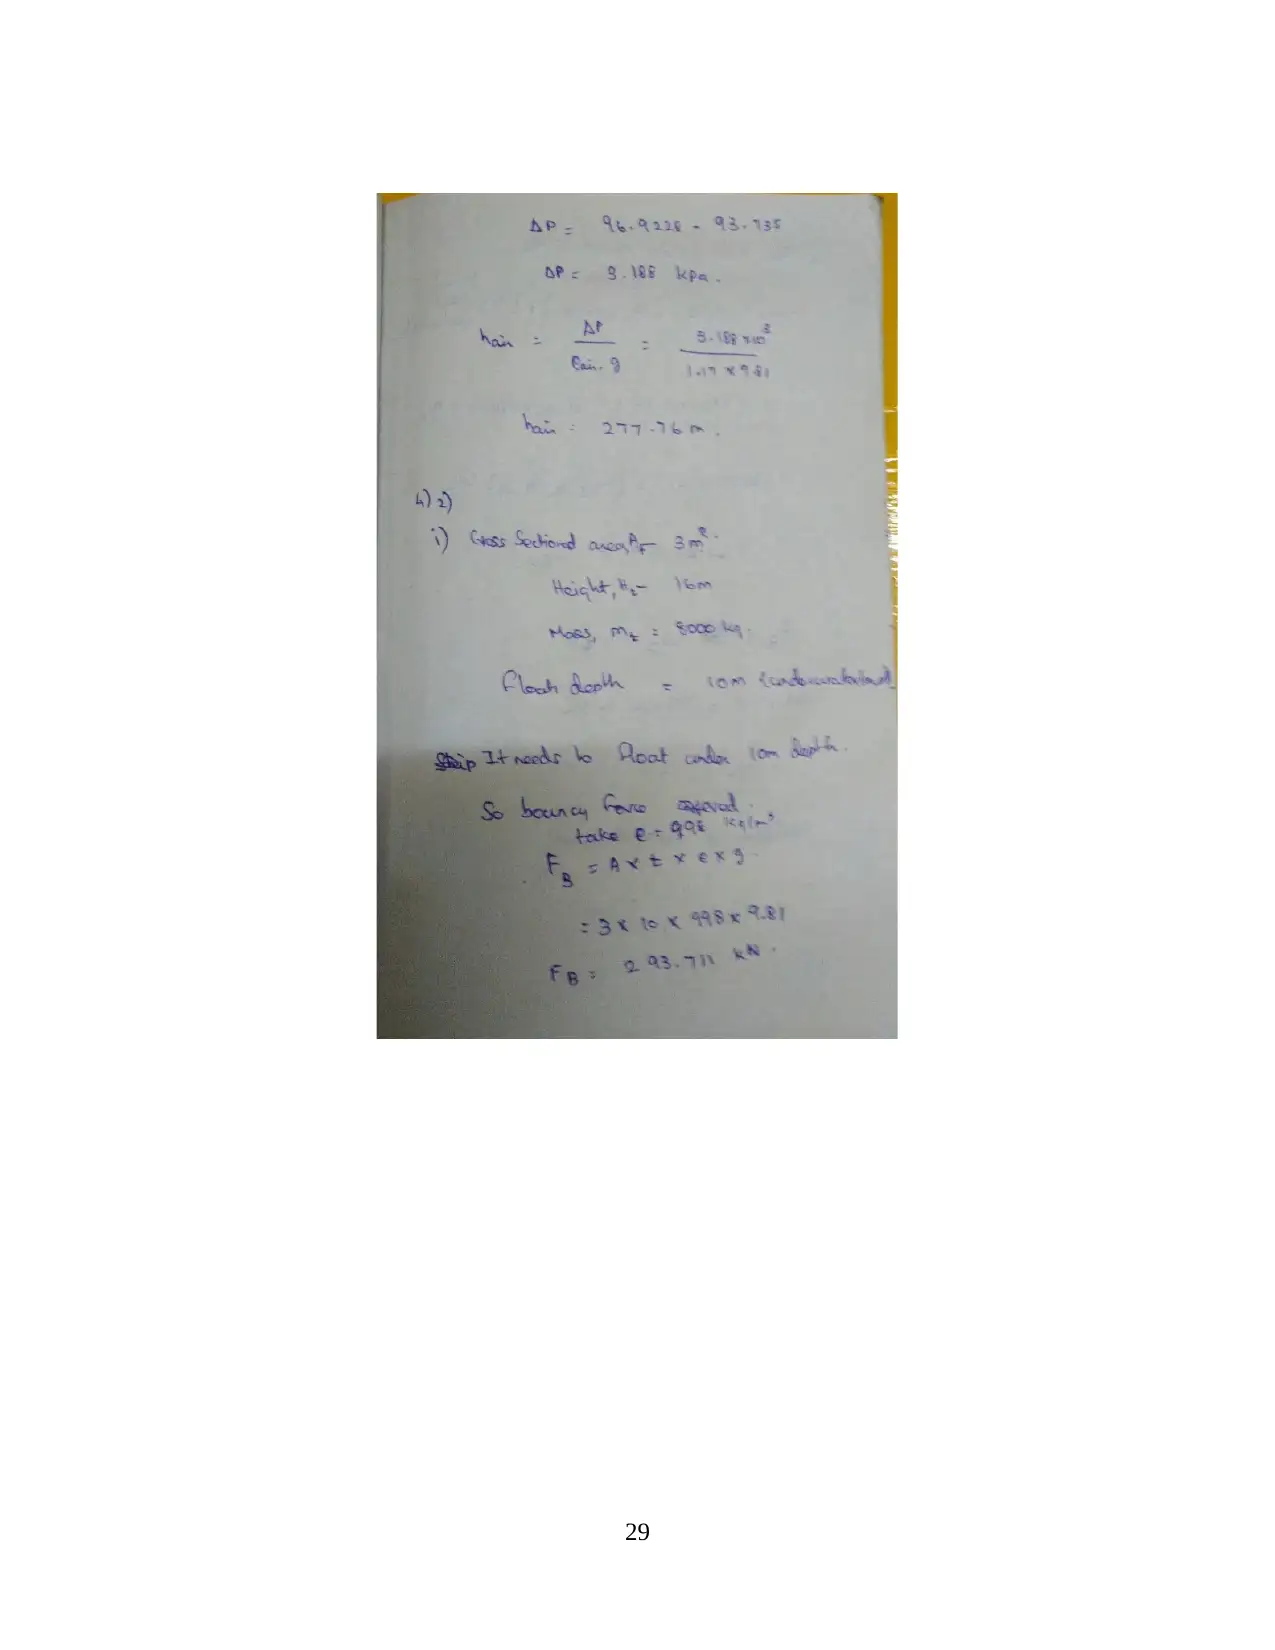 ΔP = 96.9228 - 93.735
ΔP = 3.188 kPa.
hair = ΔP / ρair. g = 3.188 x 10³ / 1.17 x 9.81
hair = 277.76 m.
4) 2)
i) Cross Sectional area, - 3m².
Height, Ht - 16m
Mass, mt = 8000 kg.
Float depth = 10m
It needs to float under 10m depth.
So bouncy force
take ρ = 998 kg/m³
FB = A x t x ρ x g.
= 3 x 10 x 998 x 9.81
FB = 293.711 kN.
29